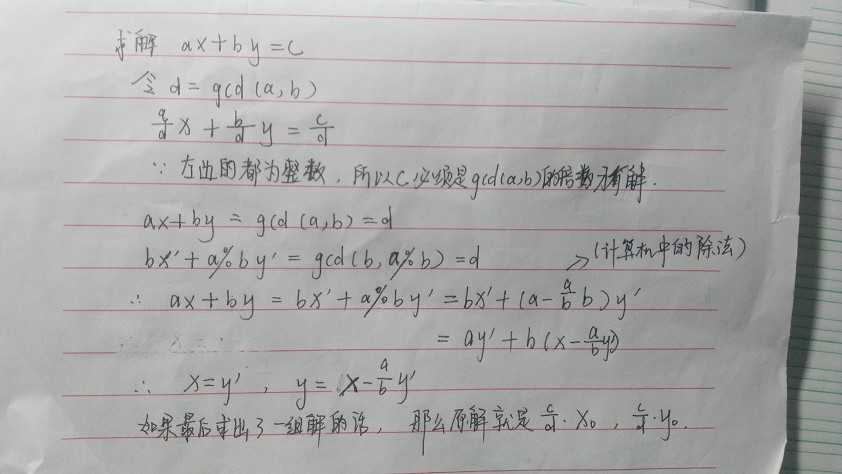 求解 ax+by=c
令 d=gcd(a,b)
a/d x + b/d y = c/d
∵ 左边的都为整数，所以c必须是gcd(a,b)的倍数才有解.
ax+by = gcd(a,b)=d
bx'+a%by' = gcd(b,a%b)=d
→(计算机中的除法)
∴ ax+by = bx'+a%by' = bx'+(a-a/b b)y'
= ay'+b(x-a/b y')
∴ x=y' , y= x-a/b y'
如果最后求出了一组解的话， 那么原解就是 c/d·x₀ , c/d·y₀.